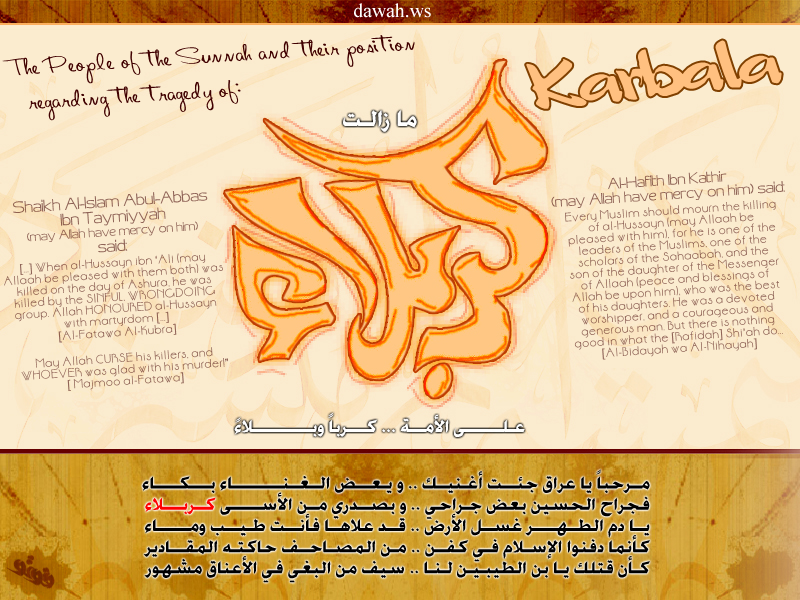 dawah.ws
The People of the Sunnah and their position
regarding the Tragedy of:
Karbala
ما زالت
كربلاء
على الأمة ... كرباً وبلاءً
Shaikh Al-Islam Abul-Abbas
Ibn Taymiyyah
(may Allah have mercy on him)
said:
[...] When al-Hussayn ibn 'Ali (may
Allaah be pleased with them both) was
killed on the day of Ashura, he was
killed by the SINFUL, WRONGDOING
group. Allah HONOURED al-Hussayn
with martyrdom [...]
[Al-Fatawa Al-Kubra]
May Allah CURSE his killers, and
WHOEVER was glad with his murder!"
[Majmoo al-Fatawa]
Al-Hafith Ibn Kathir
(may Allah have mercy on him) said:
Every Muslim should mourn the killing
of al-Hussayn (may Allaah be
pleased with him), for he is one of the
leaders of the Muslims, one of the
scholars of the Sahaabah, and the
son of the daughter of the Messenger
of Allaah (peace and blessings of
Allah be upon him), who was the best
of his daughters. He was a devoted
worshipper, and a courageous and
generous man. But there is nothing
good in what the [Rafidah] Shi'ah do...
[Al-Bidayah wa Al-Nihayah]
مرحباً يا عراق جئت أغنيك .. وبعض الغناء بكاء
فجراح الحسين بعض جراحي .. وبصدري من الأسى كربلاء
يا دم الطهر غسل الأرض .. قد علاها فأنت طيب وماء
كأنما دفنوا الإسلام في كفن .. من المصاحف حاكته المقادير
كأن قتلك يا بن الطيبين لنا .. سيف من البغي في الأعناق مشهور